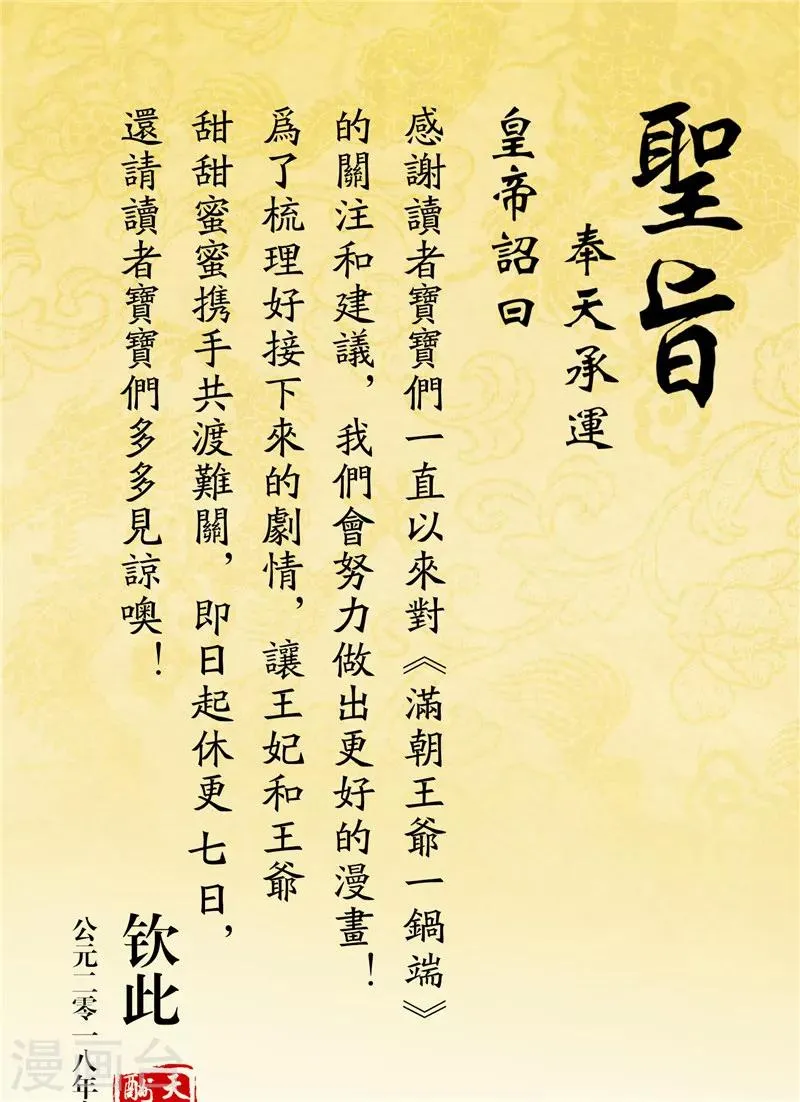 聖旨
奉天承運
皇帝詔曰
感謝讀者寶寶們一直以來對《滿朝王爺一鍋端》
的關注和建議，我們會努力做出更好的漫畫！
爲了梳理好接下來的劇情，讓王妃和王爺
甜甜蜜蜜携手共渡難關，即日起休更七日，
還請讀者寶寶們多多見諒噢！
钦此
公元二零一八年
天
漫画台